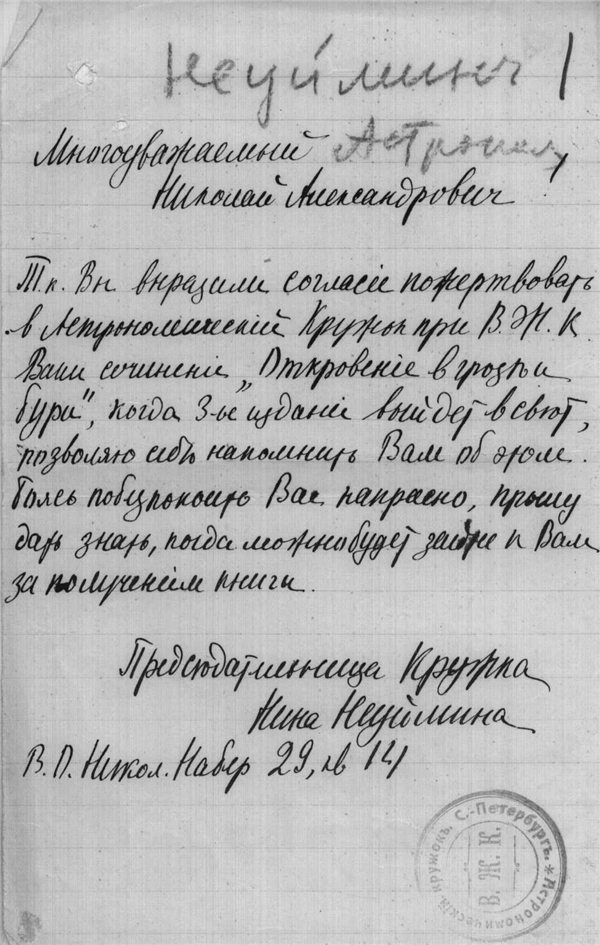 Неуймина
Астроном
Многоуважаемый
Николай Александрович,
Т. к. Вы выразили согласіе пожертвовать
в Астрономическій Кружок при В. Ж. К.
Ваши сочиненіе „Откровеніе в грозѣ и
бури", когда 3-ье изданіе выйдет в свѣт,
позволяю себѣ напомнить Вам об этом.
Боясь побезпокоить Вас напрасно, прошу
дать знать, когда можно будет к Вам
за полученіем книги.
Предсѣдательница Кружка
Нина Неуймина
В. О. Никол. Набер 29, кв 14
Астрономическій кружокъ. С.-Петербургъ.
В. Ж. К.